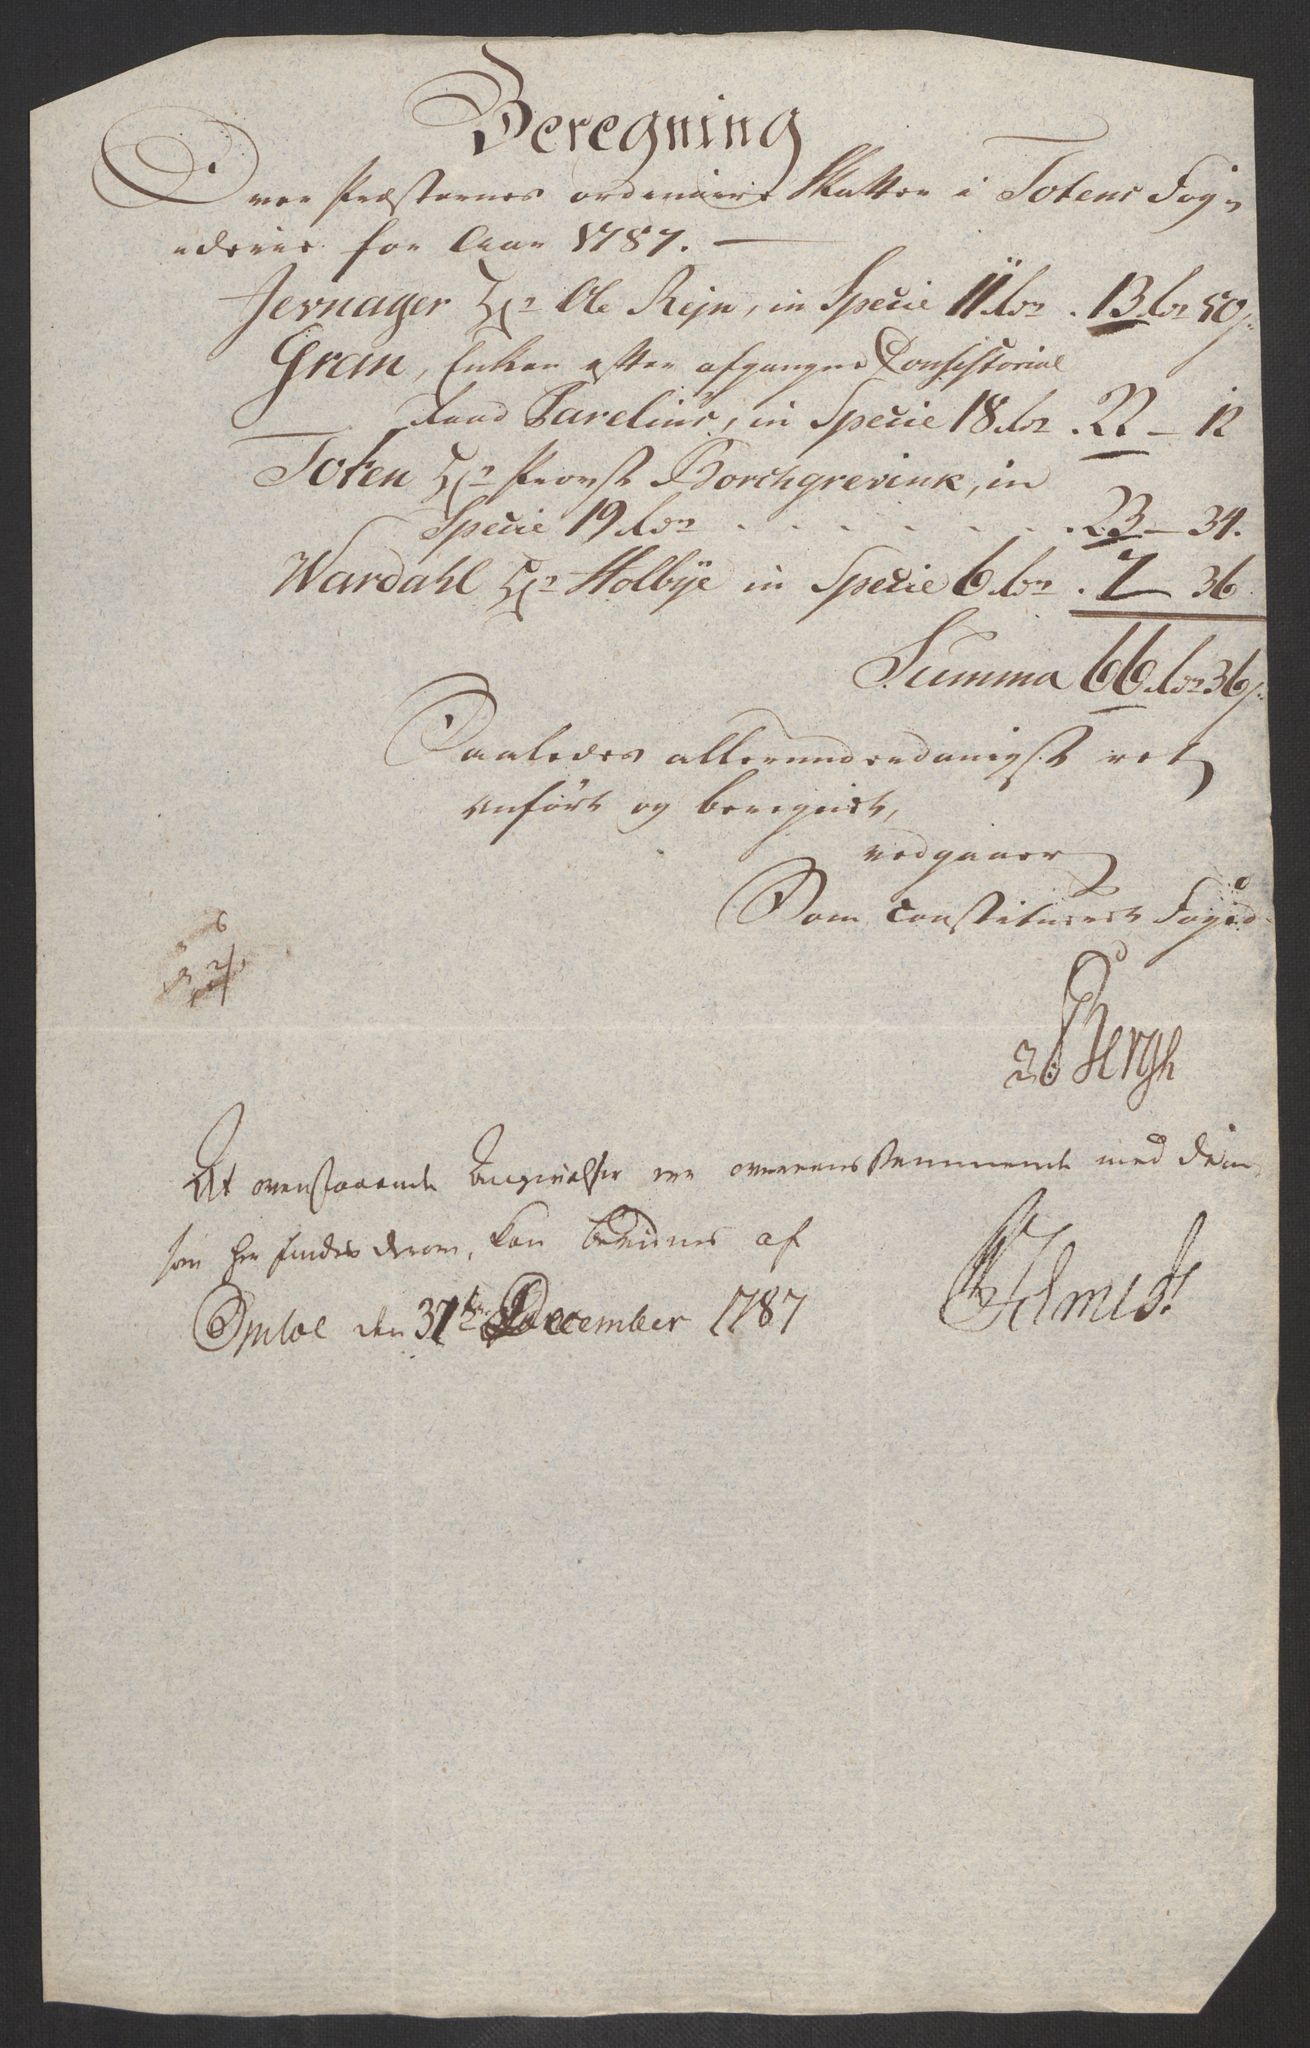 Beregning
Over Præsternes ordinaire Skatter i Totens Fog-
derie for Aar 1787. —
Jevnager Hr Ole Rejn, in Specie 11 rdr . 13 rdr 50 s
Gran, Enken efter afgangne Consistorial
Raad Barelius, in Specie 18 rdr . 22 — 12
Toten Hr Provst Borchgrevink, in
Specie 19 rdr . . . . . . . . 23 — 34.
Wardahl Hr Holbye in Specie 6 rdr . 7 — 36
Summa 66 rdr 36 s
Saaledes allerunderdanigst ret
anført og beregnet,
vedgaaer
Som Constitueret Foged
Bergh
At ovenstaaende Angivelser ere overeensstemmende med dem
som her findes derom, kan bevidnes af
den 31te December 1787